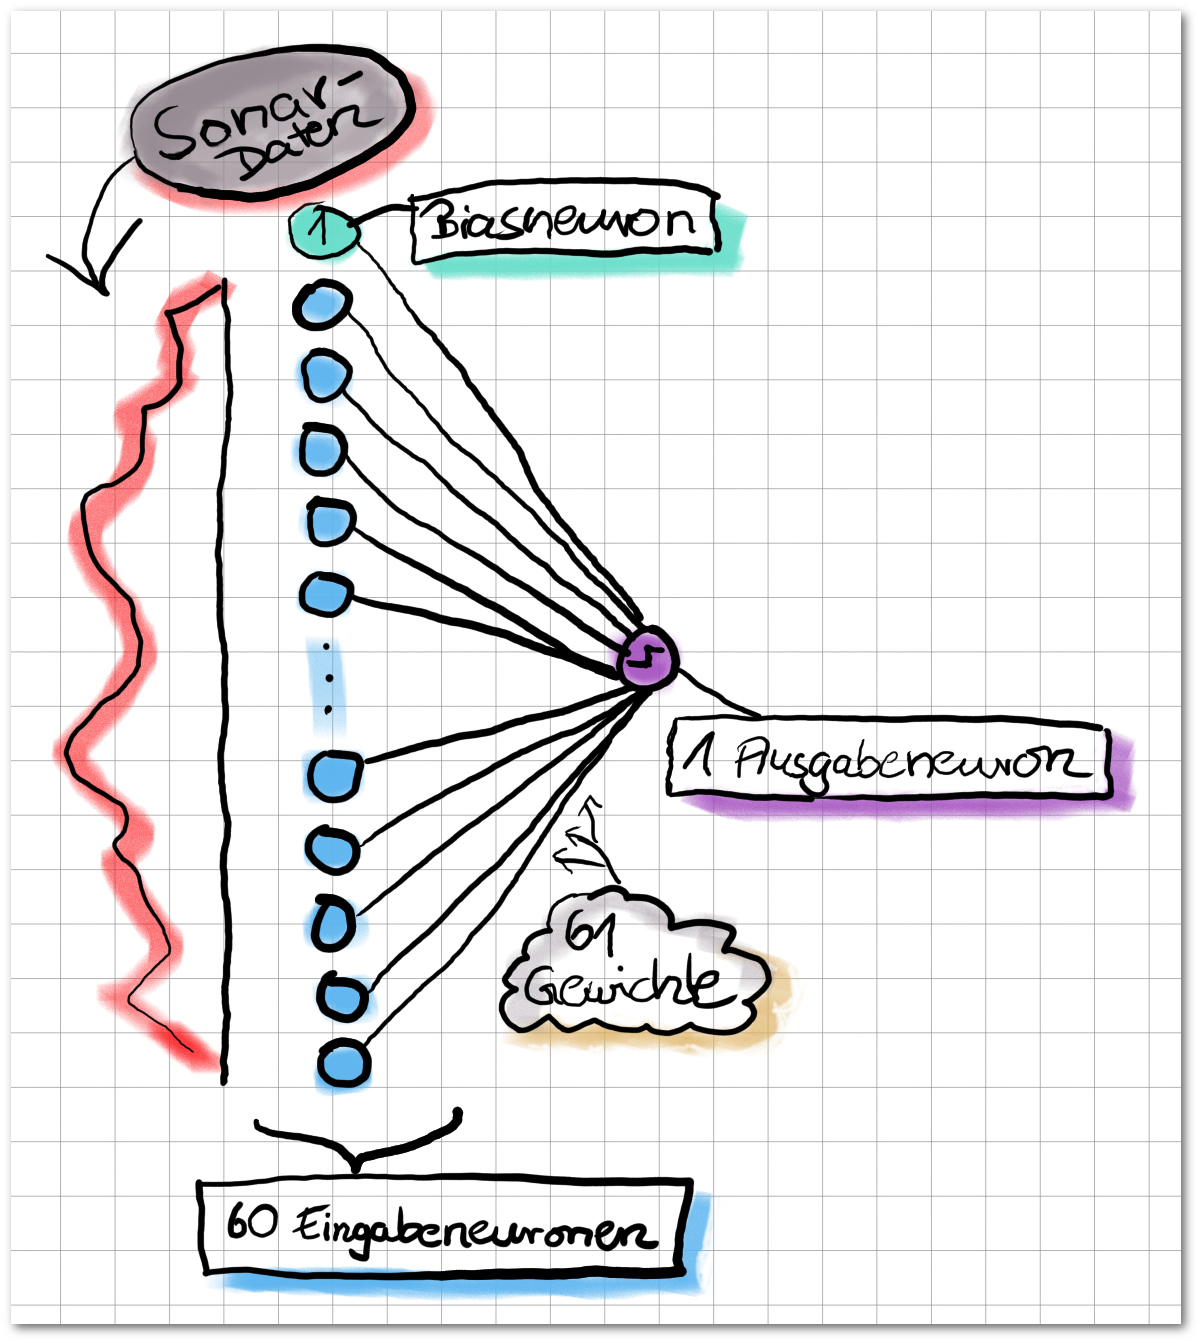 Sonar-
Daten
1
Biasneuron
1 Ausgabeneuron
61
Gewichte
60 Eingabeneuronen